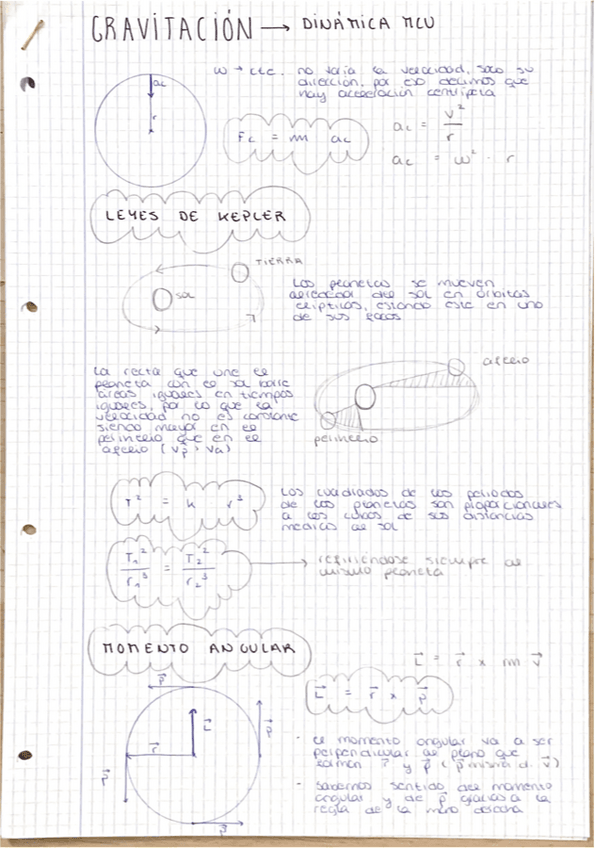 GRAVITACIÓN → DINÁMICA MCU
ω → cte. no varía la velocidad, solo su
dirección, por eso decimos que
hay aceleración centrípeta
ac
r
Fc = m ac
ac = v²/r
ac = ω² · r
LEYES DE KEPLER
TIERRA
SOL
Los planetas se mueven
alrededor del sol en órbitas
elípticas, estando este en uno
de sus focos
La recta que une el
planeta con el sol barre
áreas iguales en tiempos
iguales, por lo que la
velocidad no es constante
siendo mayor en el
perihelio que en el
afelio (vp > va)
afelio
perihelio
T² = k r³
Los cuadrados de los periodos
de los planetas son proporcionales
a los cubos de sus distancias
medias al sol
T₁²/r₁³ = T₂²/r₂³
→ refiriéndose siempre al
mismo planeta
MOMENTO ANGULAR
L⃗ = r⃗ x m v⃗
L⃗ = r⃗ x p⃗
p⃗
L⃗
p⃗
r⃗
p⃗
p⃗
- el momento angular va a ser
perpendicular al plano que
forman r⃗ y p⃗ (p⃗ misma d. v⃗)
- Sabemos sentido del momento
angular y de p⃗ gracias a la
regla de la mano derecha